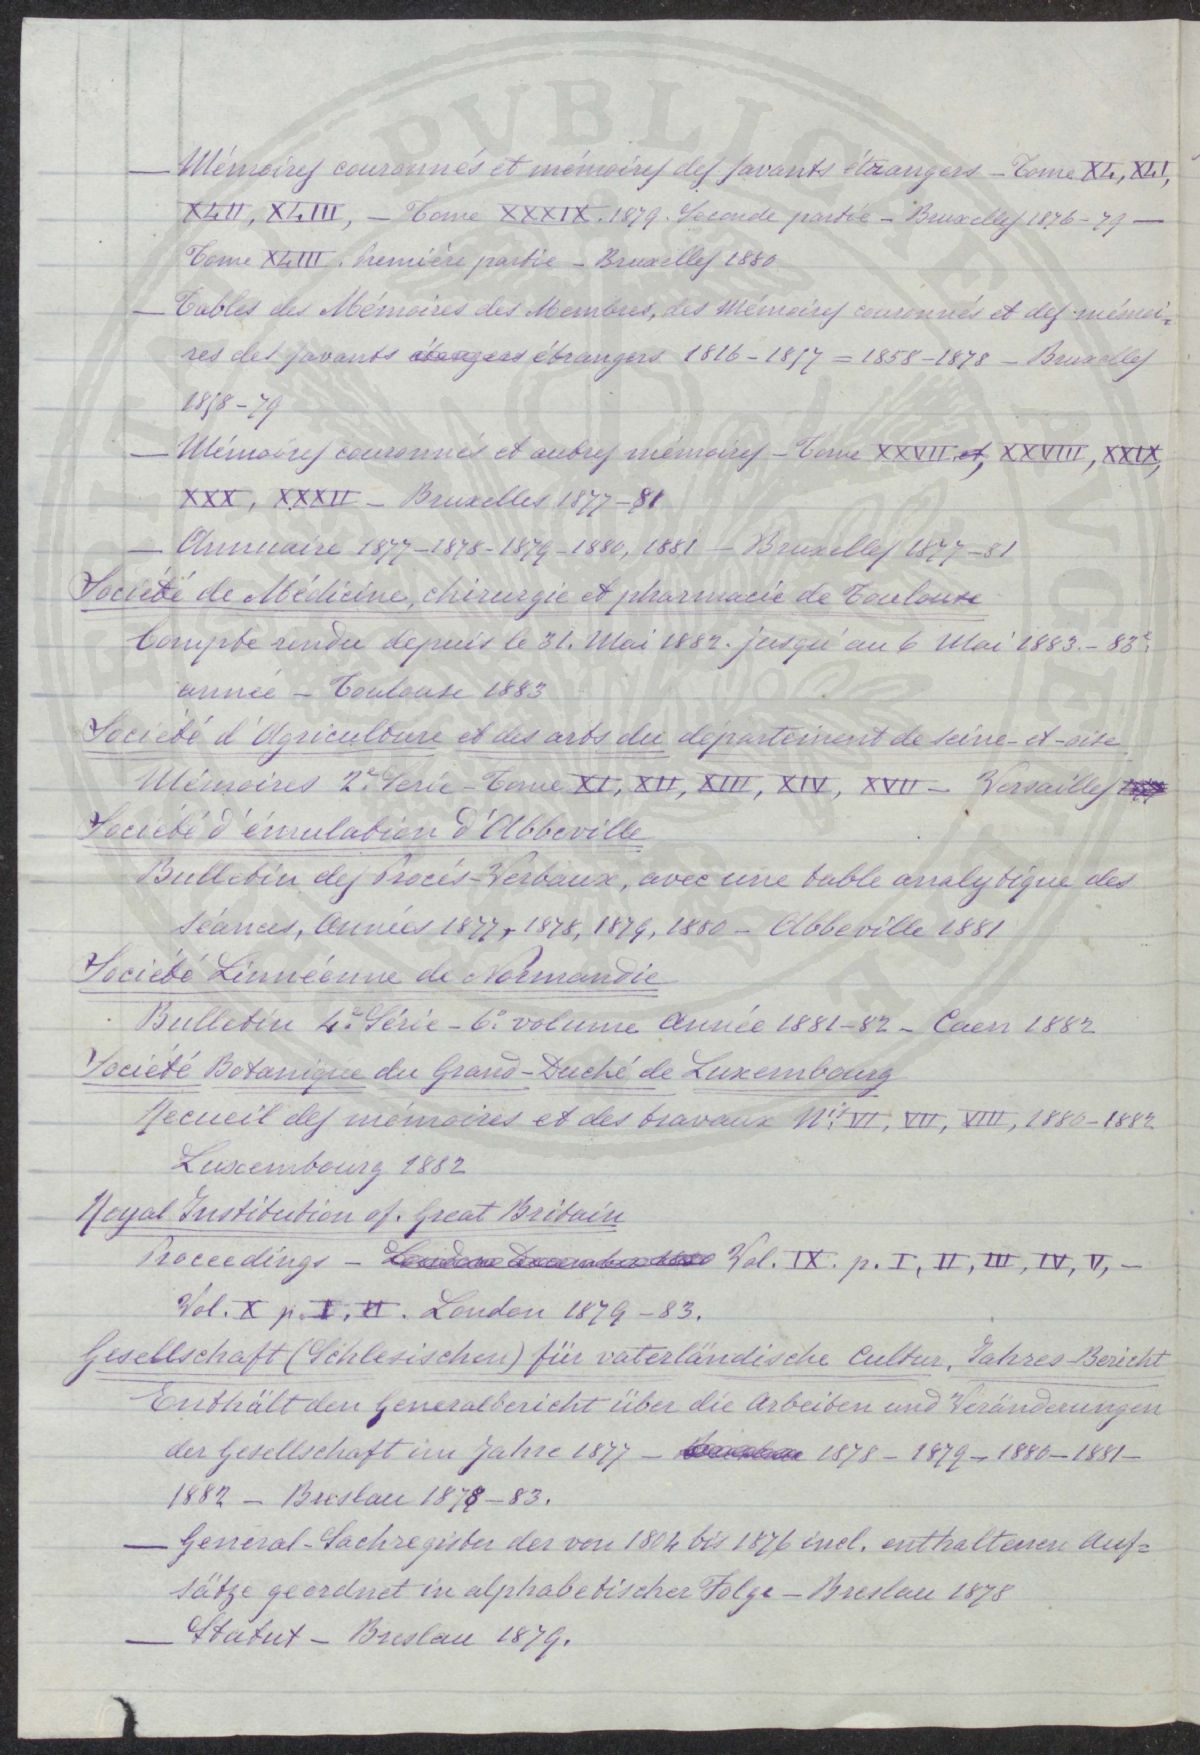 — Mémoires couronnés et mémoires des savants étrangers – Tome XL, XLI,
XLII, XLIII, – Tome XXXIX. 1879. Seconde partie – Bruxelles 1876–79 —
Tome XLIII. Première partie – Bruxelles 1880
— Tables des Mémoires des Membres, des Mémoires couronnés et des mémoi=
res des savants étrangers 1816–1857 = 1858–1878 – Bruxelles
1858–79
— Mémoires couronnés et autres mémoires – Tome XXVII, XXVIII, XXIX,
XXX, XXXII – Bruxelles 1877–81
— Annuaire 1877–1878–1879–1880, 1881 – Bruxelles 1877–81
Société de Médicine, chirurgie et pharmacie de Toulouse
Compte rendu depuis le 31. Mai 1882. jusqu'au 6 Mai 1883. – 83e.
année – Toulouse 1883
Société d'Agriculture et des arts du département de seine-et-oise
Mémoires 2e. Serie – Tome XI, XII, XIII, XIV, XVII – Versailles
Société d'émulation d'Abbeville
Bulletin des Procès-Verbaux, avec une table analytique des
séances, Années 1877, 1878, 1879, 1880 – Abbeville 1881
Société Linnéenne de Normandie
Bulletin 4e. Série – 6e. volume Année 1881–82 – Caen 1882
Société Botanique du Grand-Duché de Luxembourg
Recueil des mémoires et des travaux Nos. VI, VII, VIII, 1880–1882
Luxembourg 1882
Royal Institution of. Great Britain
Proceedings – Vol. IX. p. I, II, III, IV, V, –
Vol. X p. I, II. London 1879–83.
Gesellschaft (Schlesischen) für vaterländische Cultur, Jahres-Bericht
Enthält den Generalbericht über die Arbeiten und Veränderungen
der Gesellschaft im Jahre 1877 – 1878 – 1879 – 1880 – 1881 –
1882 – Breslau 1878–83.
— General-Sachregister der von 1804 bis 1876 incl. enthaltenen Auf=
sätze geordnet in alphabetischer Folge – Breslau 1878
— Statut – Breslau 1879.